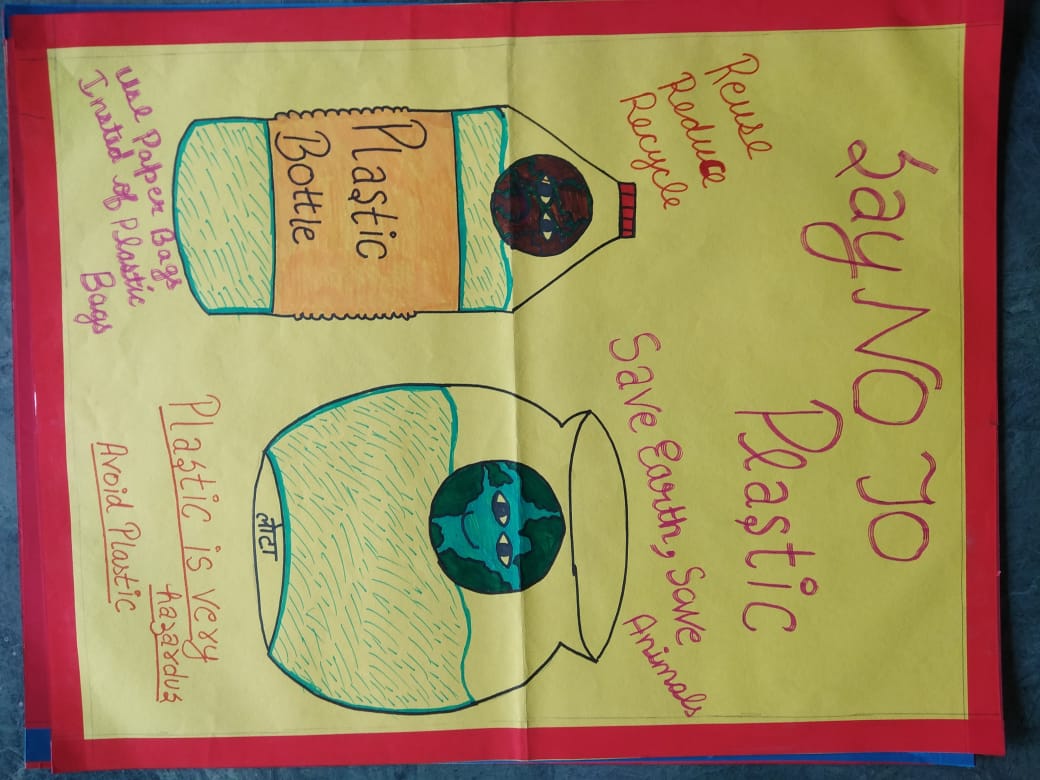 Say NO TO
Plastic
Reuse
Reduce
Recycle
Save Earth, Save
Animals
Plastic
Bottle
लोटा
Use Paper Bags
Insted of Plastic
Bags
Plastic is very
hazardus
Avoid Plastic